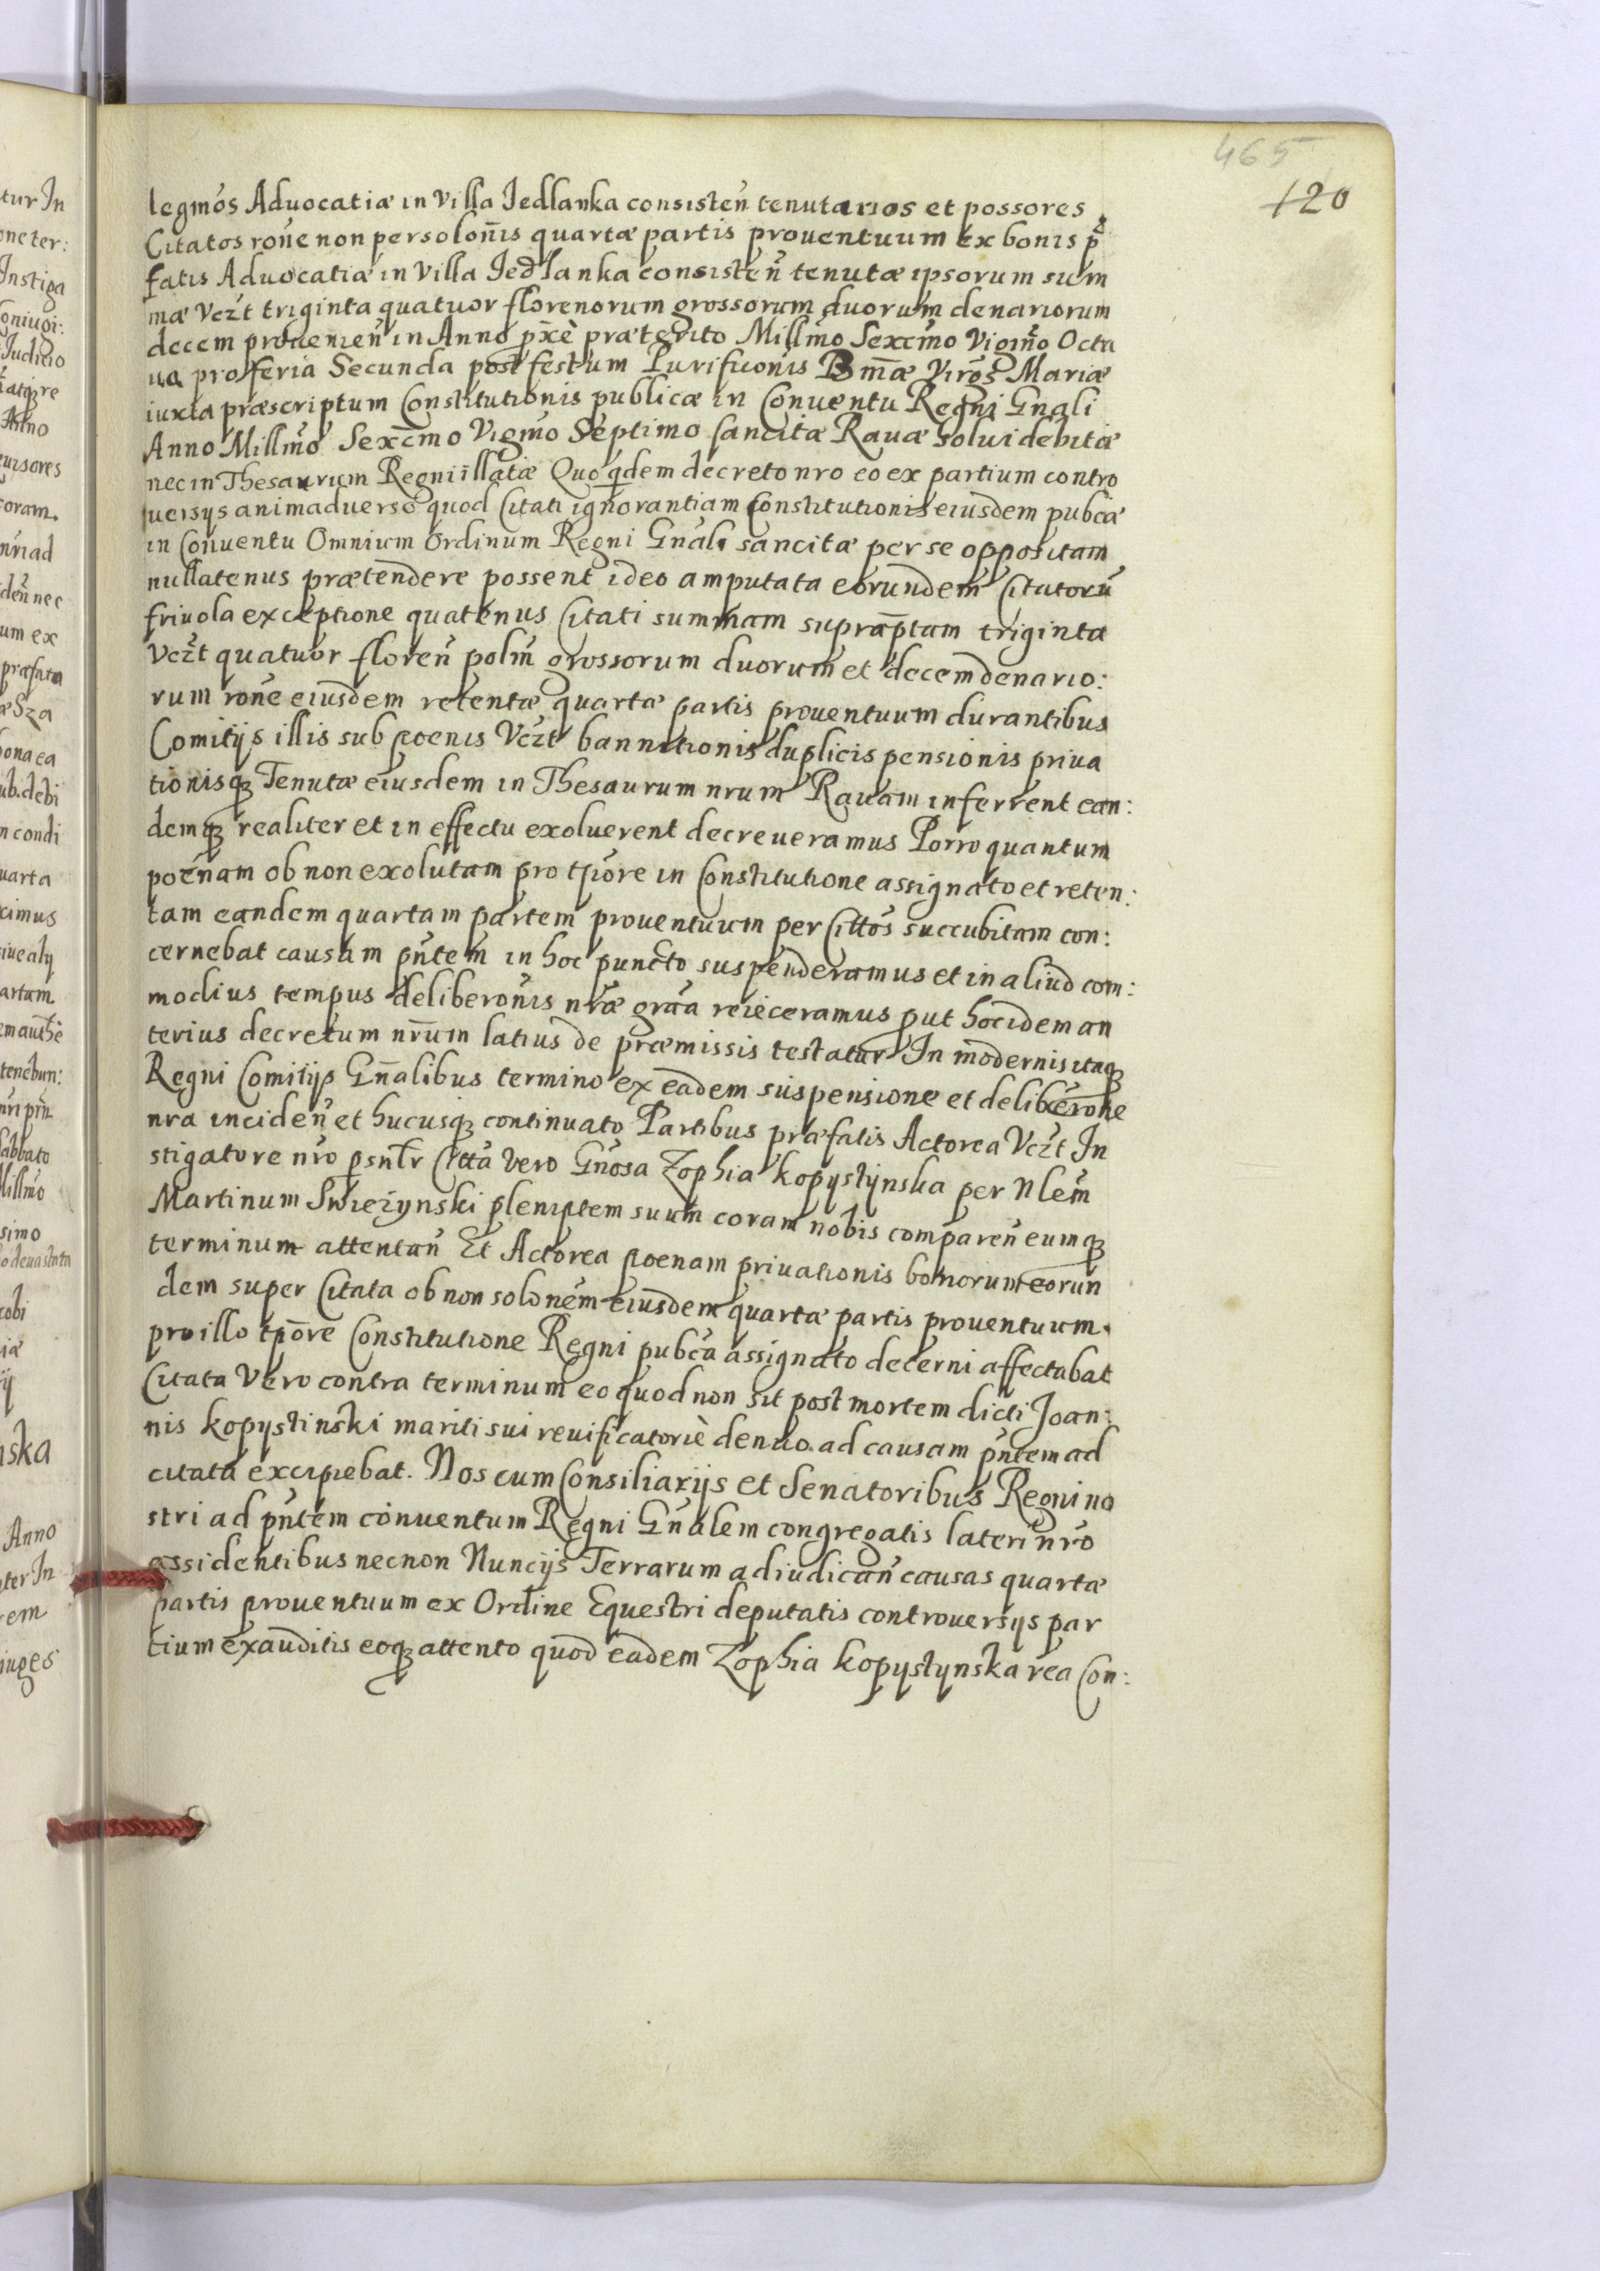 465
120
legmōs Advocatiæ in Villa Jedlanka consisten̄ tenutarios et possores
Citatos rōne non persolōnis quartæ partis proventuum ex bonis p̄
fatis Advocatiæ in Villa Jedlanka consisten̄ tenutæ ipsorum sum
mæ Vczt triginta quatuor florenorum grossorum duorum denariorum
decem provenien̄ in Anno px̄è præterito Millmō Sexcmō Vigmō Octa
va pro feria Secunda post festum Purificōnis Bmæ Virgs Mariæ
iuxta præscriptum Constitutionis publicæ in Conventu Regni Gnāli
Anno Millmō Sexcmō Vigmō Septimo sancitæ Ravæ solvi debitæ
nec in Thesaurum Regni illatæ Quo qdem decreto nro eo ex partium contro
versijs animadverso quod Citati ignorantiam Constitutionis eiusdem pubcæ
in Conventu Omnium Ordinum Regni Gnāli sancitæ per se oppositam
nullatenus prætendere possent ideo amputata eorundem Citatorū
frivola exceptione quatenus Citati summam suprap̄tam triginta
Vczt quatuor floren̄ polm̄ grossorum duorum et decem denario:
rum rōne eiusdem retentæ quartæ partis proventuum durantibus
Comitijs illis sub pœnis Vczt bannitionis duplicis pensionis priva
tionisq; Tenutæ eiusdem in Thesaurum nrum Ravam inferrent ean:
demq; realiter et in effectu exolverent decreveramus Porro quantum
pœnam ob non exolutam pro tpōre in Constitutione assignato et reten:
tam eandem quartam partem proventuum per Cittōs succubitam con:
cernebat causam pn̄tem in hoc puncto suspenderamus et in aliud com:
modius tempus deliberōnis nræ grāa reieceramus put hoc idem an
terius decretum nr̄um latius de præmissis testatur In modernis itaq;
Regni Comitijs Gn̄alibus termino ex eadem suspensione et deliberōne
nra inciden̄ et hucusq; continuato Partibus præfatis Actorea Vczt In
stigatore nrō psnl̄r Cittā vero Gnōsa Zophia Kopystynska per Nlem̄
Martinum Swiezynski plenip̄tem suum coram nobis comparen̄ eumq;
terminum attentan̄ Et Actorea pœnam privationis bonorum eorun
dem super Citata ob non solōnem eiusdem quartæ partis proventuum
pro illo tpōre Constitutione Regni pubca assignato decerni affectabat
Citata Vero contra terminum eo quod non sit post mortem dicti Joan:
nis Kopystinski mariti sui revificatoriè denuo ad causam pn̄tem ad
citata excipiebat. Nos cum Consiliarijs et Senatoribus Regni no
stri ad pn̄tem conventum Regni Gnālem congregatis lateri nrō
assidentibus necnon Nuncijs Terrarum adiudican̄ causas quartæ
partis proventuum ex Ordine Equestri deputatis controversijs par
tium exauditis eoq; attento quod eadem Zophia Kopystynska rea Con: